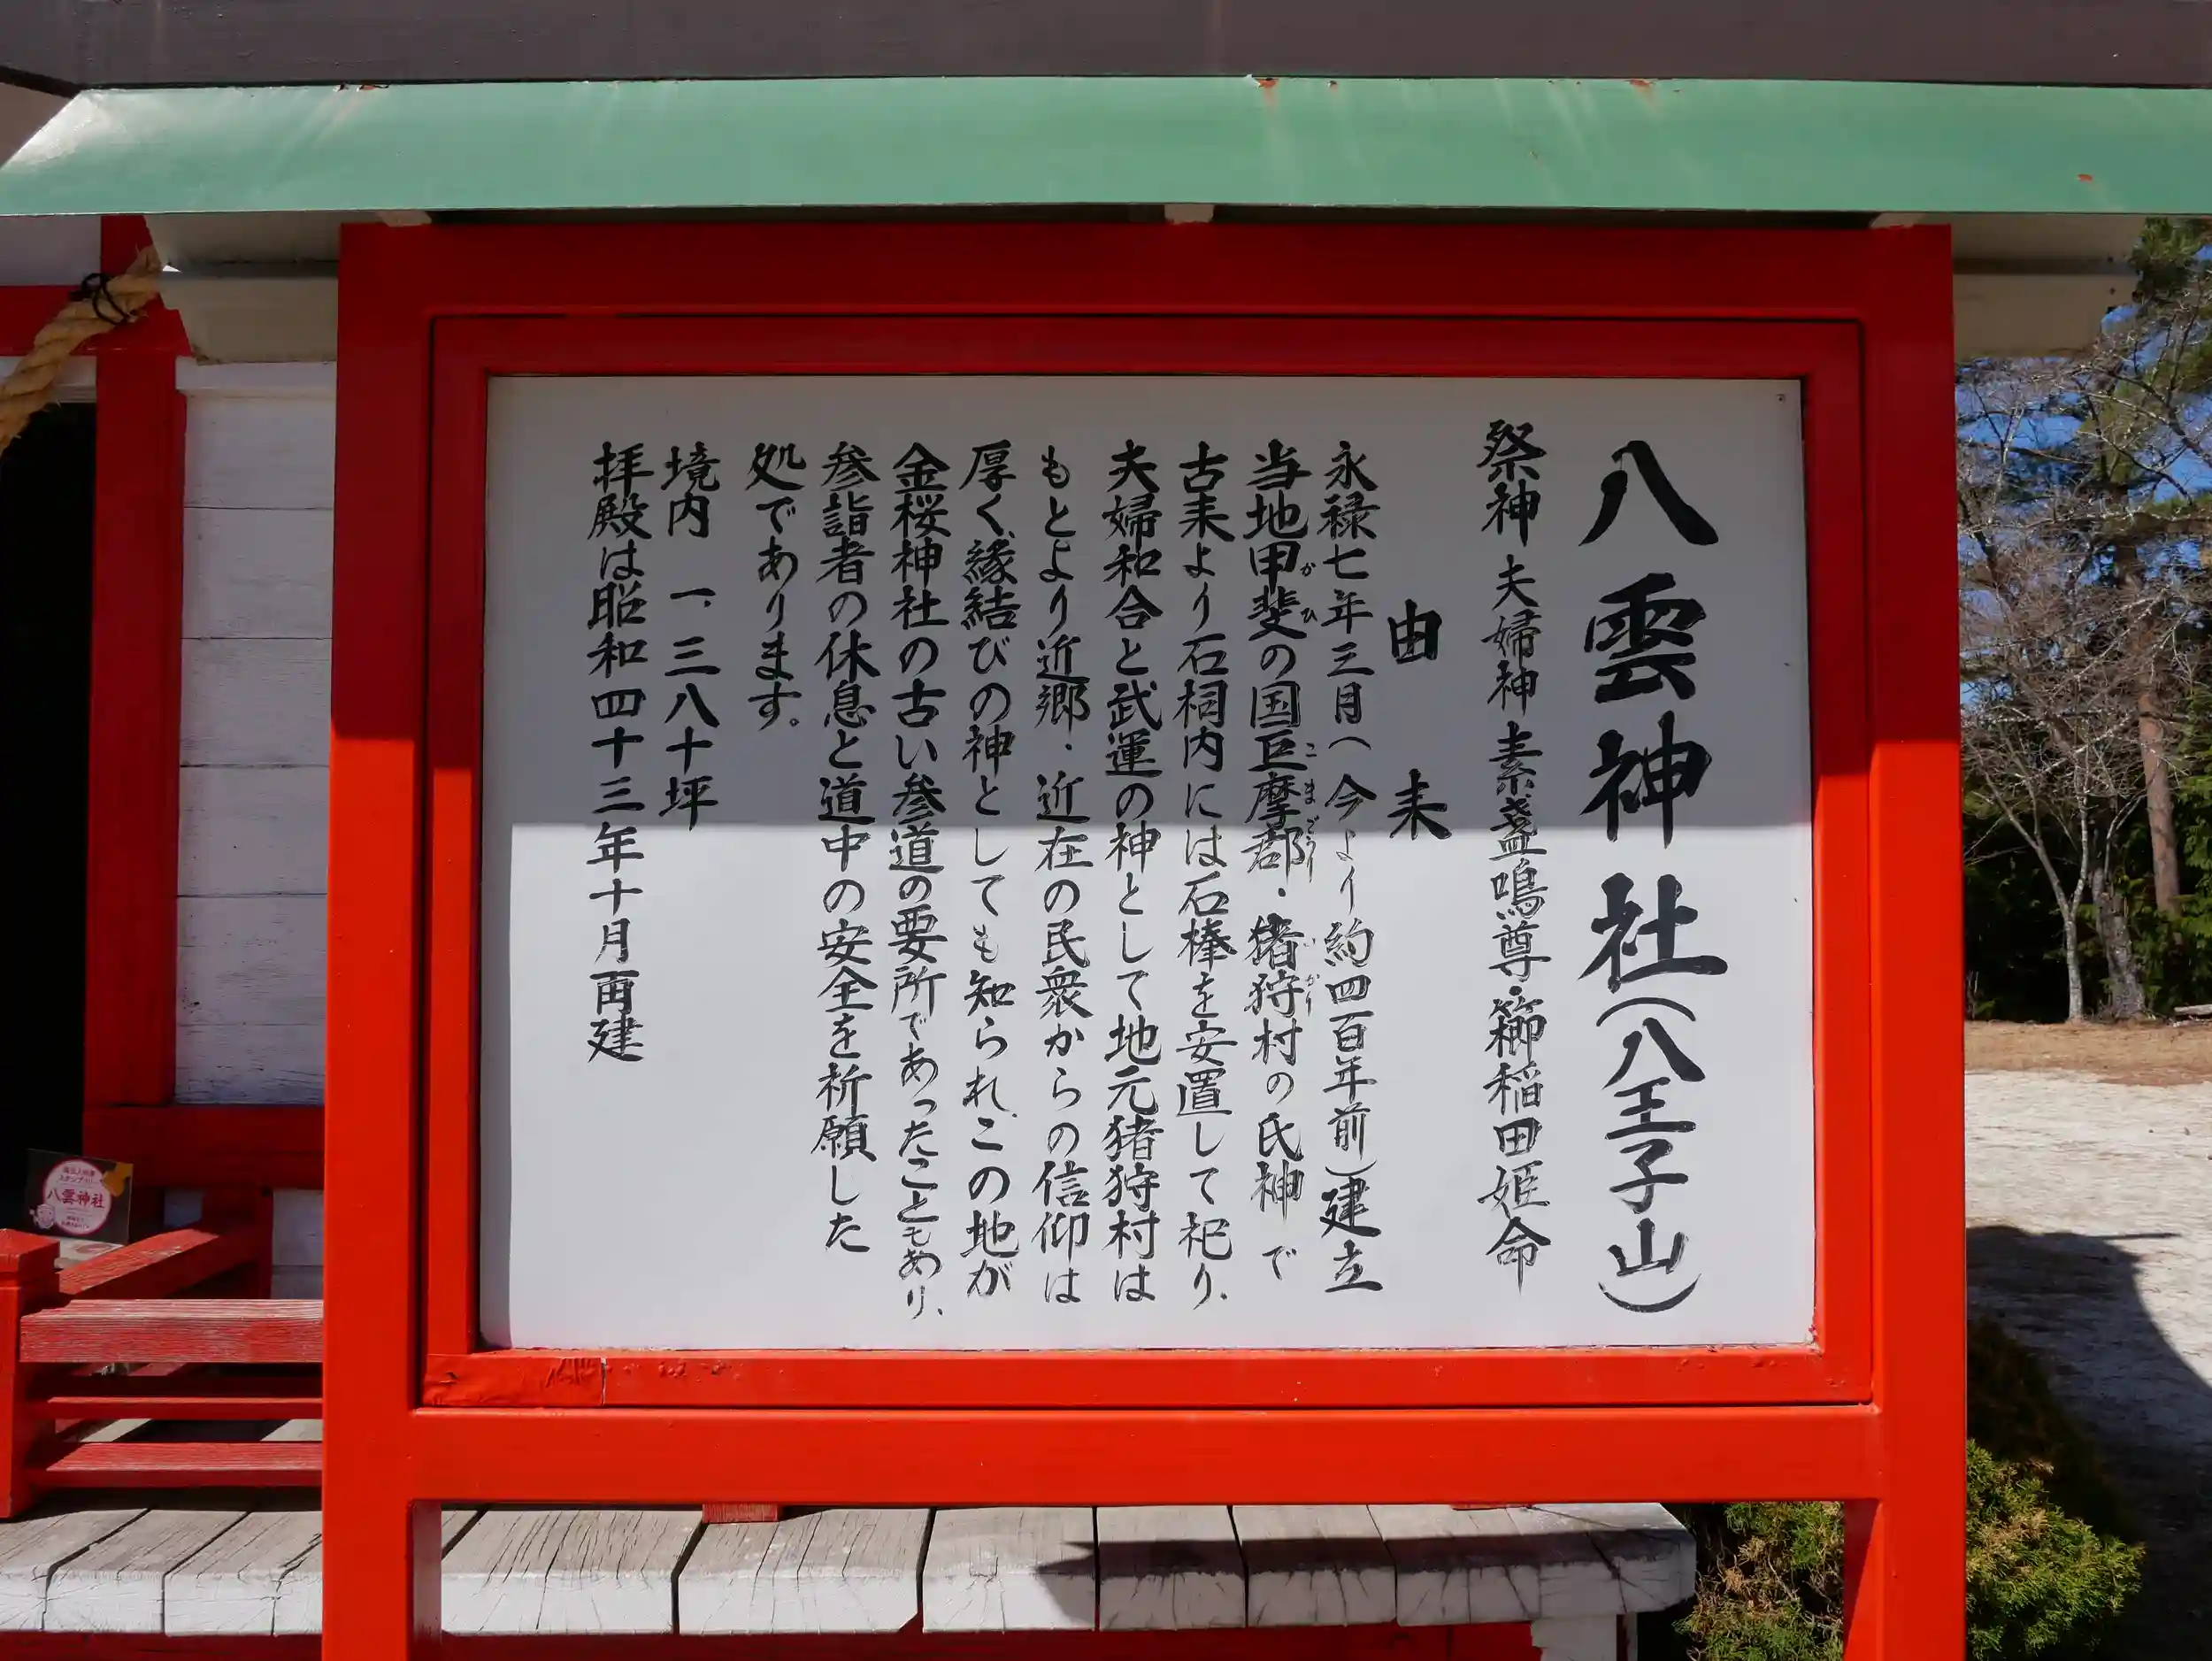 八雲神社(八王子山)
祭神 夫婦神 素盞鳴尊・櫛稲田姫命
由来
永禄七年三月(今より約四百年前)建立
当地甲斐の国巨摩郡・猪狩村の氏神で
かひ こまごうり いかり
古来より石祠内には石棒を安置して祀り、
夫婦和合と武運の神として地元猪狩村は
もとより近郷・近在の民衆からの信仰は
厚く、縁結びの神としても知られ、この地が
金桜神社の古い参道の要所であったこともあり、
参詣者の休息と道中の安全を祈願した
処であります。
境内 一、三八十坪
拝殿は昭和四十三年十月再建
八雲神社